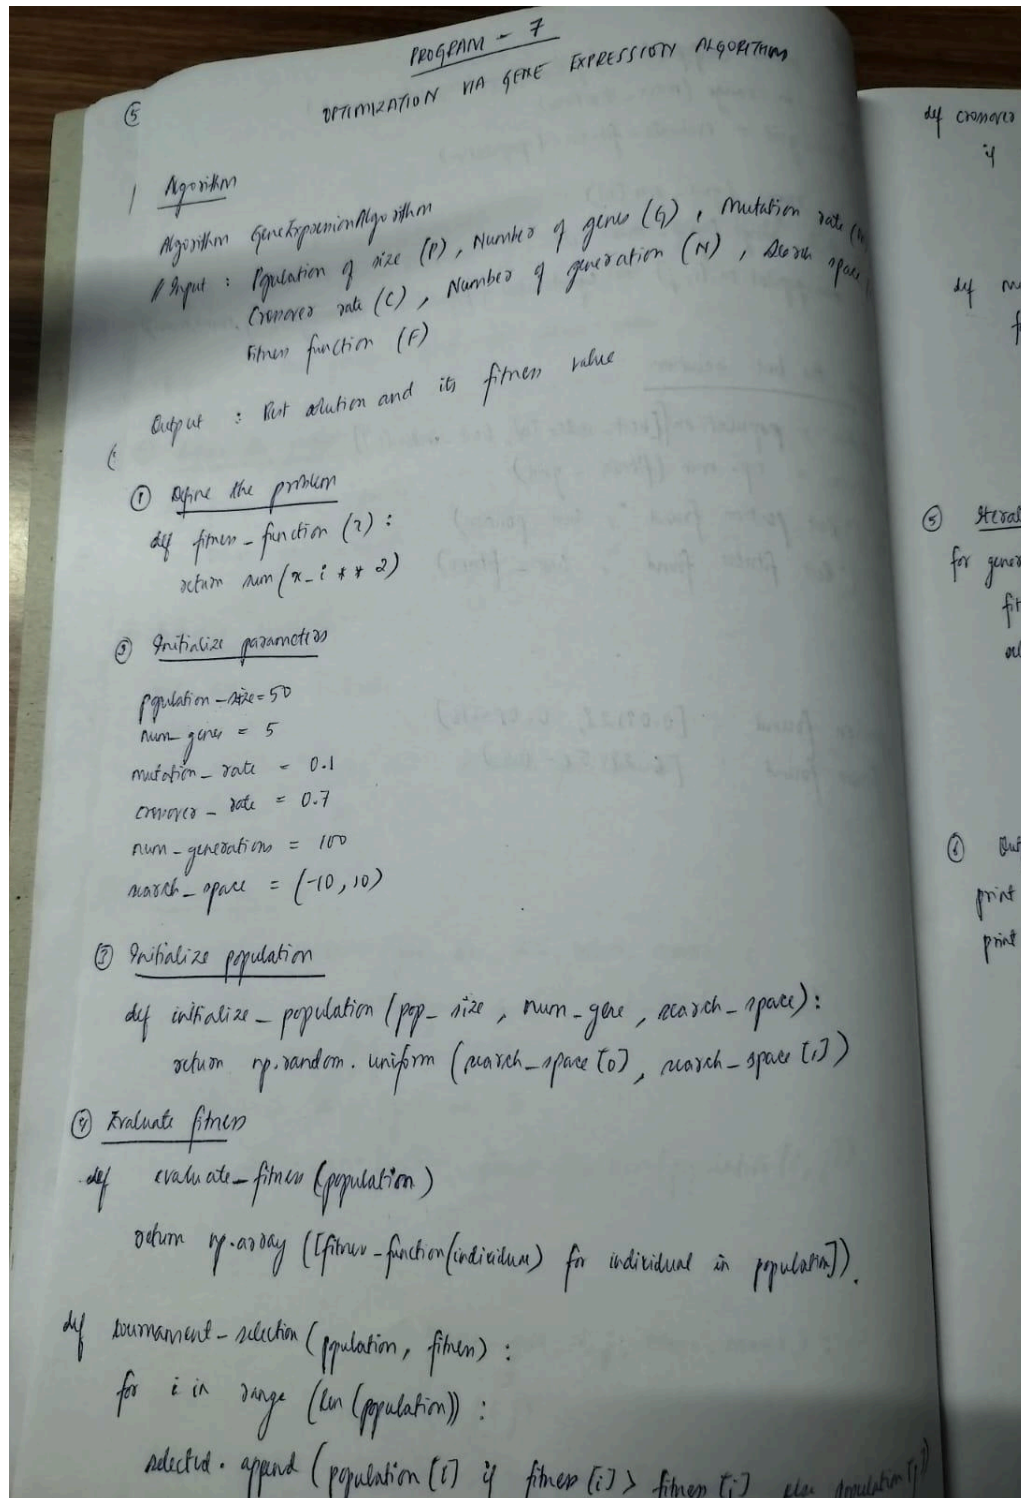 PROGRAM - 7
OPTIMIZATION VIA GENE EXPRESSION ALGORITHM
⑤
Algorithm
Algorithm GeneExpressionAlgorithm
Input : Population of size (P), Number of genes (G), Mutation rate
Crossover rate (C), Number of generation (N), search space
Fitness function (F)
Output : Best solution and its fitness value
① Define the problem
def fitness_function (x) :
return sum (x_i ** 2)
② Initialize parameters
population_size = 50
num_genes = 5
mutation_rate = 0.1
crossover_rate = 0.7
num_generations = 100
search_space = (-10, 10)
③ Initialize population
def initialize_population (pop_size, num_gene, search_space):
return np.random.uniform (search_space [0], search_space [1])
④ Evaluate fitness
def evaluate_fitness (population)
return np.array ([fitness_function(individual) for individual in population]).
def tournament_selection (population, fitness) :
for i in range (len (population)) :
selected.append (population [i] if fitness [i] > fitness [j] else population [j])
def crossover
if
def
⑤
for
⑥
print
print